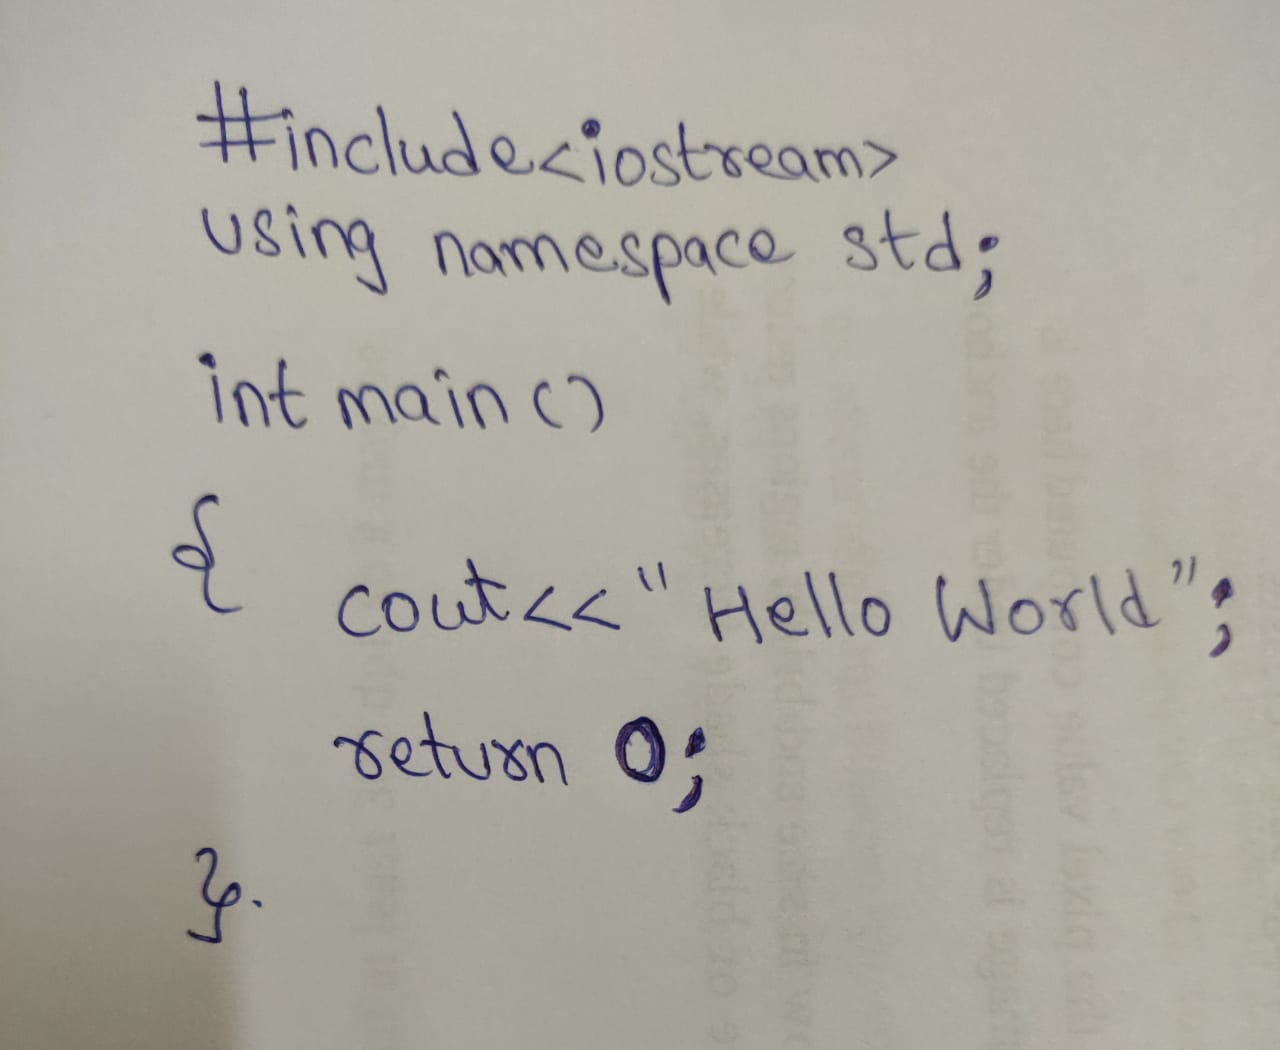 #include<iostream>
using namespace std;
int main()
{
cout<<"Hello World";
return 0;
}.